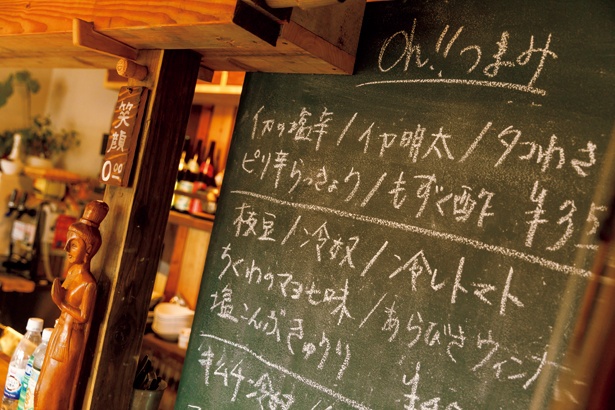 Oh!!つまみ
イカの塩辛/イカ明太/タコわさ
ピリ辛らっきょう/もずく酢 ¥35
枝豆/冷奴/冷しトマト
ちくわのマヨ七味/あらびきウィンナー
塩こんぶきゅうり
笑顔
0